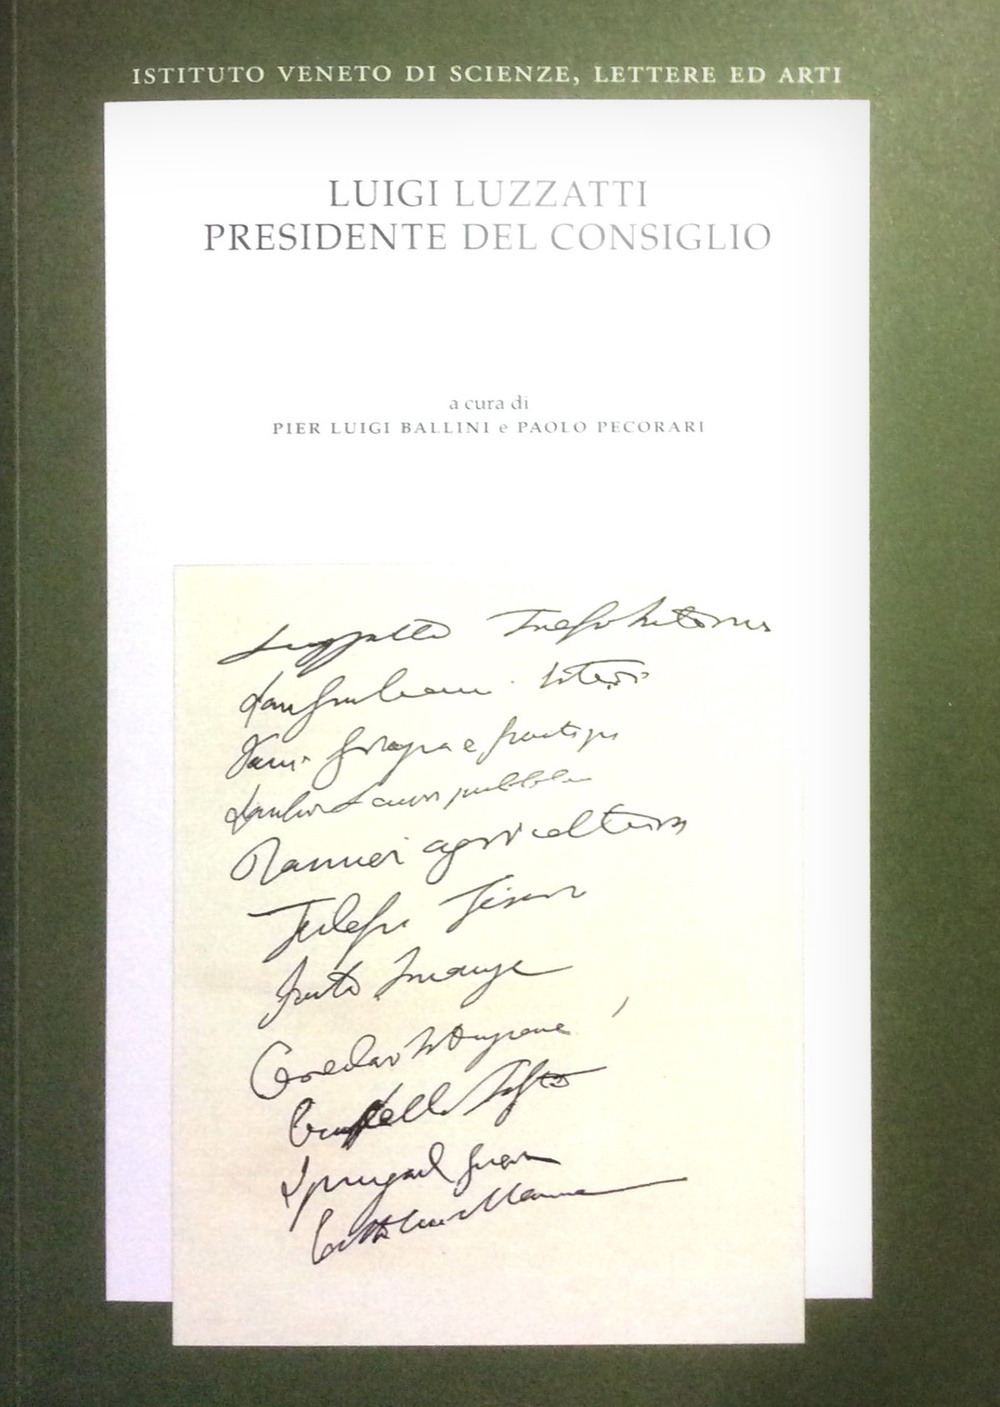 ISTITUTO VENETO DI SCIENZE, LETTERE ED ARTI
LUIGI LUZZATTI
PRESIDENTE DEL CONSIGLIO
a cura di
PIER LUIGI BALLINI e PAOLO PECORARI
Luzzatti
Sangiuliano esteri
Fani grazia e giustizia
Sacchi lavori pubblici
Rainieri agricoltura
Tedesco Tesoro
Facta finanze
Credaro istruzione
Spingardi guerra
Cattolica Marina